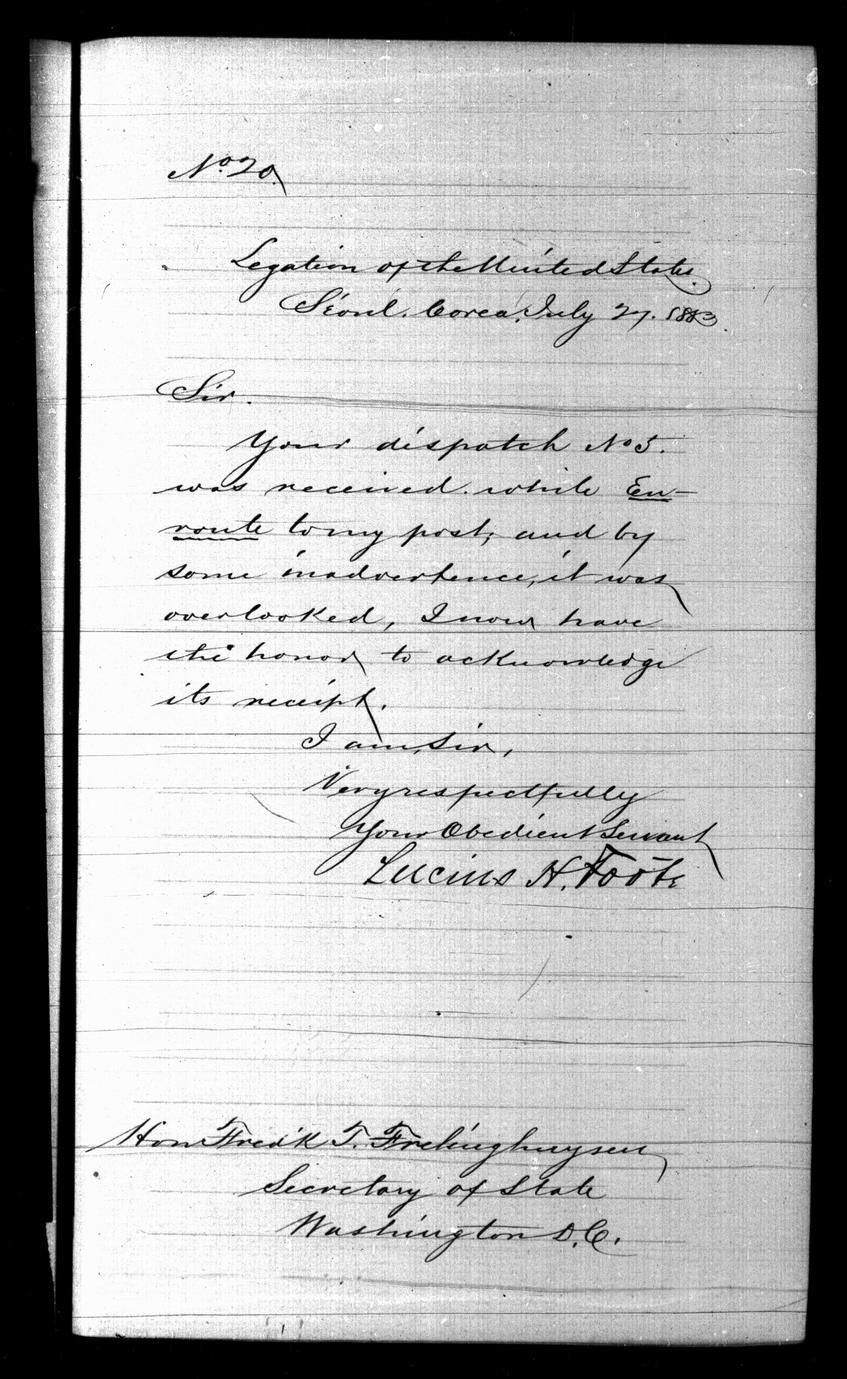 No. 20.
Legation of the United States.
Séoul. Corea, July 27. 1883.
Sir.
Your dispatch No 5.
was received while En-
route to my post, and by
some inadvertence, it was
overlooked, I now have
the honor to acknowledge
its receipt.
I am, Sir,
Very respectfully
Your Obedient Servant
Lucius H. Foote
Hon Fred'k T. Frelinghuysen
Secretary of State
Washington D.C.